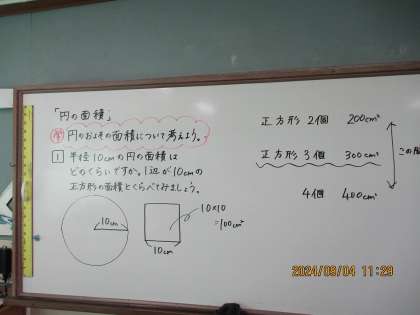 「円の面積」
学 円のおよその面積について考えよう。
1 半径10cmの円の面積は
どのくらいですか。1辺が10cmの
正方形の面積とくらべてみましょう。
10cm
10×10
=100cm²
10cm
正方形 2個 200cm²
正方形 3個 300cm²
4個 400cm²
この
2024/09/04 11:29